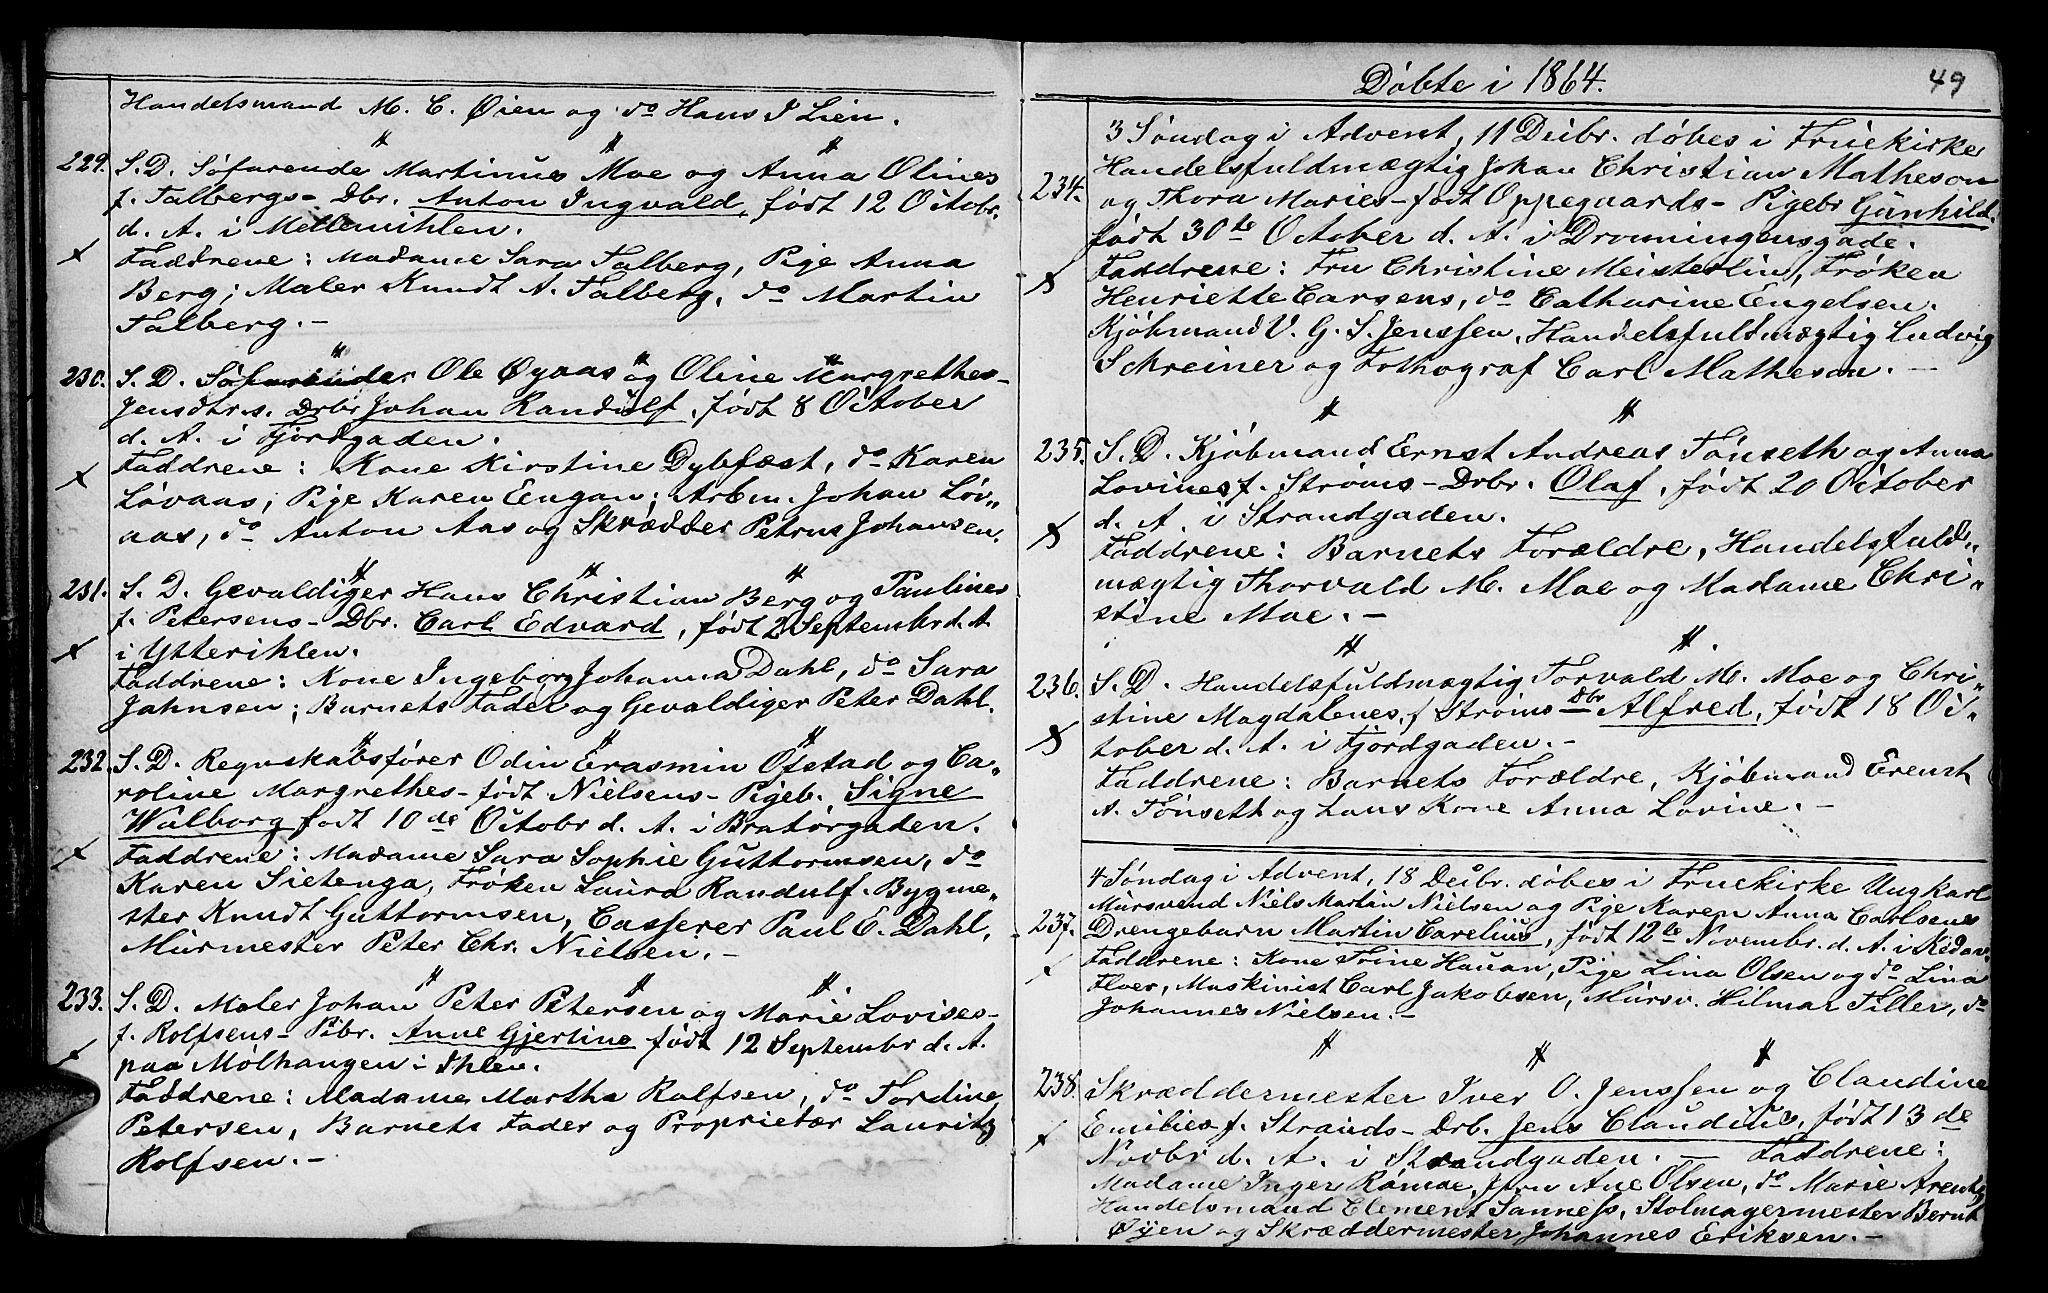 Handelsmand M. C. Øien og do Hans J Lien.
〃 〃 〃
229. S. D. Søfarende Martinus Moe og Anna Olines
f. Talbergs- Dbr. Anton Ingvald, født 12 Octobr.
d. A. i Mellemihlen.
Faddrene: Madame Sara Talberg, Pige Anna
Berg; Maler Knudt A. Talberg, do Martin
Talberg.-
〃 〃 〃
230. S. D. Søfarende Ole Øyaas og Oline Margrethes-
Jensdtrs. Drbr Johan Randulf, født 8 October
d. A. i Fjordgaden.
Faddrene: Kone Kirstine Dybfæst, do Karen
Løvaas; Pige Karen Engan; Arbm. Johan Løv„
aas, do Anton Aas og Skrædder Petrus Johansen.
〃 〃 〃
231. S. D. Gevaldiger Hans Christian Berg og Paulines
f. Petersens- Dbr. Carl Edvard, født 2 Septembr d. A.
i Ytterihlen.
Faddrene: Kone Ingeborg Johanna Dahl, do Sara
Jahnsen; Barnets Fader og Gevaldiger Peter Dahl.
〃 〃 〃
232. S. D. Regnskabsfører Odin Erasmin Ofstad og Ca„
roline Margrethes- født Nielsens- Pigeb. Signe
Walborg født 10de Octobr d. A. i Bratørgaden.
Faddrene: Madame Sara Sophie Guttormsen, do
Karen Sietenga, Frøken Laura Randulf. Bygme„
ster Knudt Guttormsen, Casserer Paul E. Dahl,
Murmester Peter Chr. Nielsen.-
〃 〃 〃
233. S. D. Maler Johan Peter Petersen og Marie Lovises-
f. Rolfsens- Pibr. Anne Gjertine født 12 Septembr d. A.
paa Mølhaugen i Ihlen.
Faddrene: Madame Martha Rolfsen, do Tordine
Petersen, Barnets Fader og Proprietær Lauritz
Rolfsen.-
Døbte i 1864. 49
3 Søndag i Advent, 11 Deibr. døbes i Fruekirke
234. Handelsfuldmægtig Johan Christian Matheson
og Thora Maries- født Oppegaards- Pigebr Gunhild.
født 30te October d. A. i Dronningensgade.
Faddrene: Fru Christine Meisterlin, Frøken
Henriette Carsens, do Catharine Engelsen.
Kjøbmand V. G. S. Jenssen, Handelsfuldmægtig Ludvig
Schreiner og Fothograf Carl Matheson.-
〃 〃
235. S. D. Kjøbmand Ernst Andreas Tønseth og Anna
Lovines f. Strøms- Drbr. Olaf, født 20 October
d. A. i Strandgaden.
Faddrene: Barnets Forældre, Handelsfuld„
mægtig Thorvald M. Moe og Madame Chri„
stine Moe.-
〃 〃.
236. S. D. Handelsfuldmægtig Torvald M. Moe og Chri„
stine Magdalenes, f Strøms Dbr Alfred, født 18 Oc„
tober d. A. i Fjordgaden.-
Faddrene: Barnets Forældre, Kjøbmand Ernst
A. Tønseth og hans Kone Anna Lovine.-
4 Søndag i Advent, 18 Deibr. døbes i Fruekirke Ungkarl
Mursvend Niels Martin Nielsen og Pige Karen Anna Carlsens
237. Drengebarn Martin Carelius, født 12te Novembr. d. A. i
Faddrene: Kone Trine Hauan, Pige Lina Olsen og do Lina
Floer, Maskinist Carl Jakobsen, Mursv. Hilmar Tiller, do
Johannes Nielsen.-
〃 〃 〃
238. Skræddermester Iver O. Jenssen og Claudine
Emilies f. Strands- Drb. Jens Claudius, født 13de
Novbr d. A. i Strandgaden.- Faddrene:
Madame Inger Ramøe, Ane Olsen, do Marie Arentz
Handelsmand Clement Sanness, Stolmagermester Bernt
Øyen og Skræddermester Johannes Eriksen.-